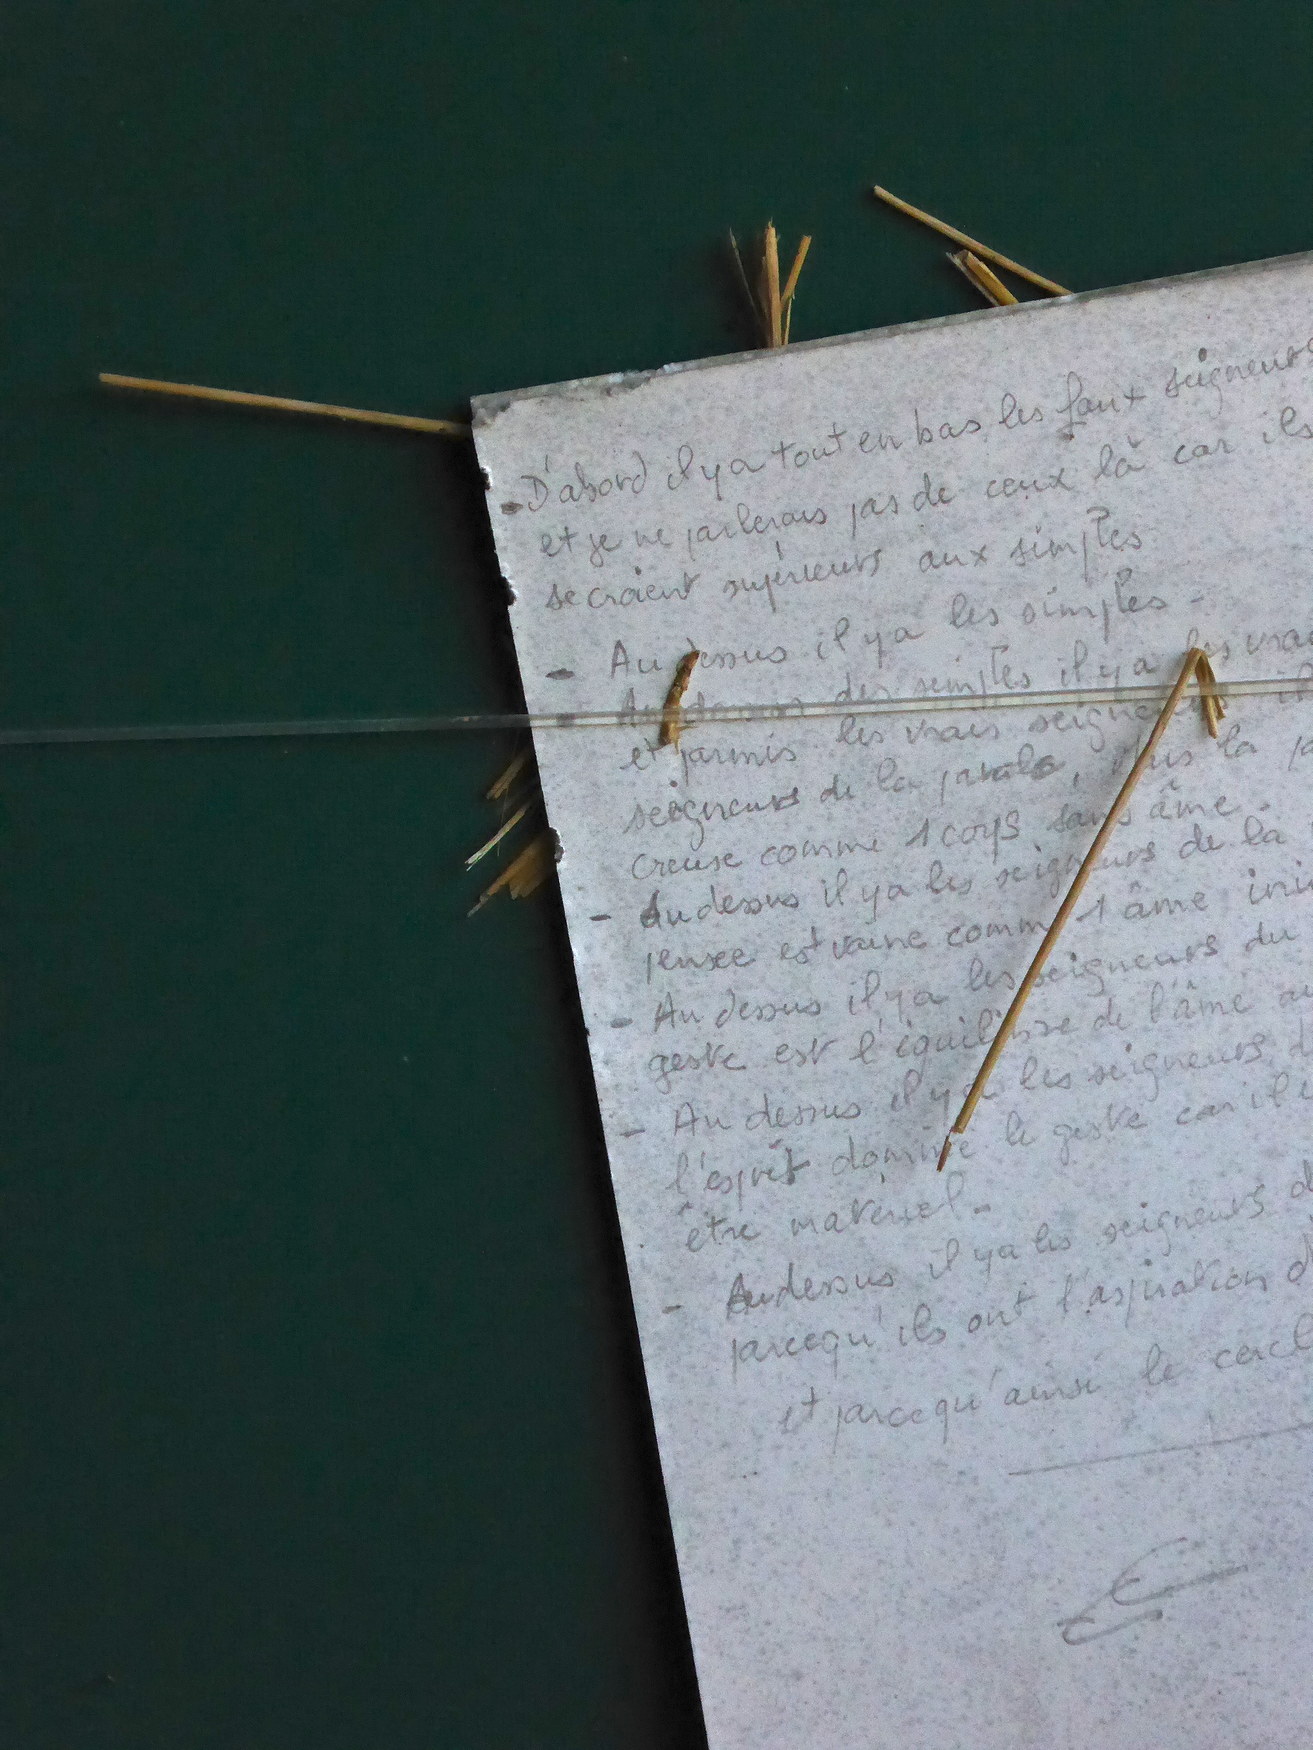 - D'abord il y a tout en bas les faux seigneurs
et je ne parlerais pas de ceux là car ils
se croient supérieurs aux simples
- Au dessus il y a les simples -
- Au dessus des simples il y a les vrai
et parmis les vrais seigneurs
seigneurs de la parole, mais la
creuse comme 1 corps sans âme.
- Au dessus il y a les seigneurs de la
pensee est vaine comme 1 âme
- Au dessus il y a les seigneurs du
geste est l'équilibre de l'âme
- Au dessus il y a les seigneurs d
l'esprit domine le geste car il
être matériel -
- Au dessus il y a les seigneurs d
parcequ'ils ont l'aspiration d
et parcequ'ainsi le cercl